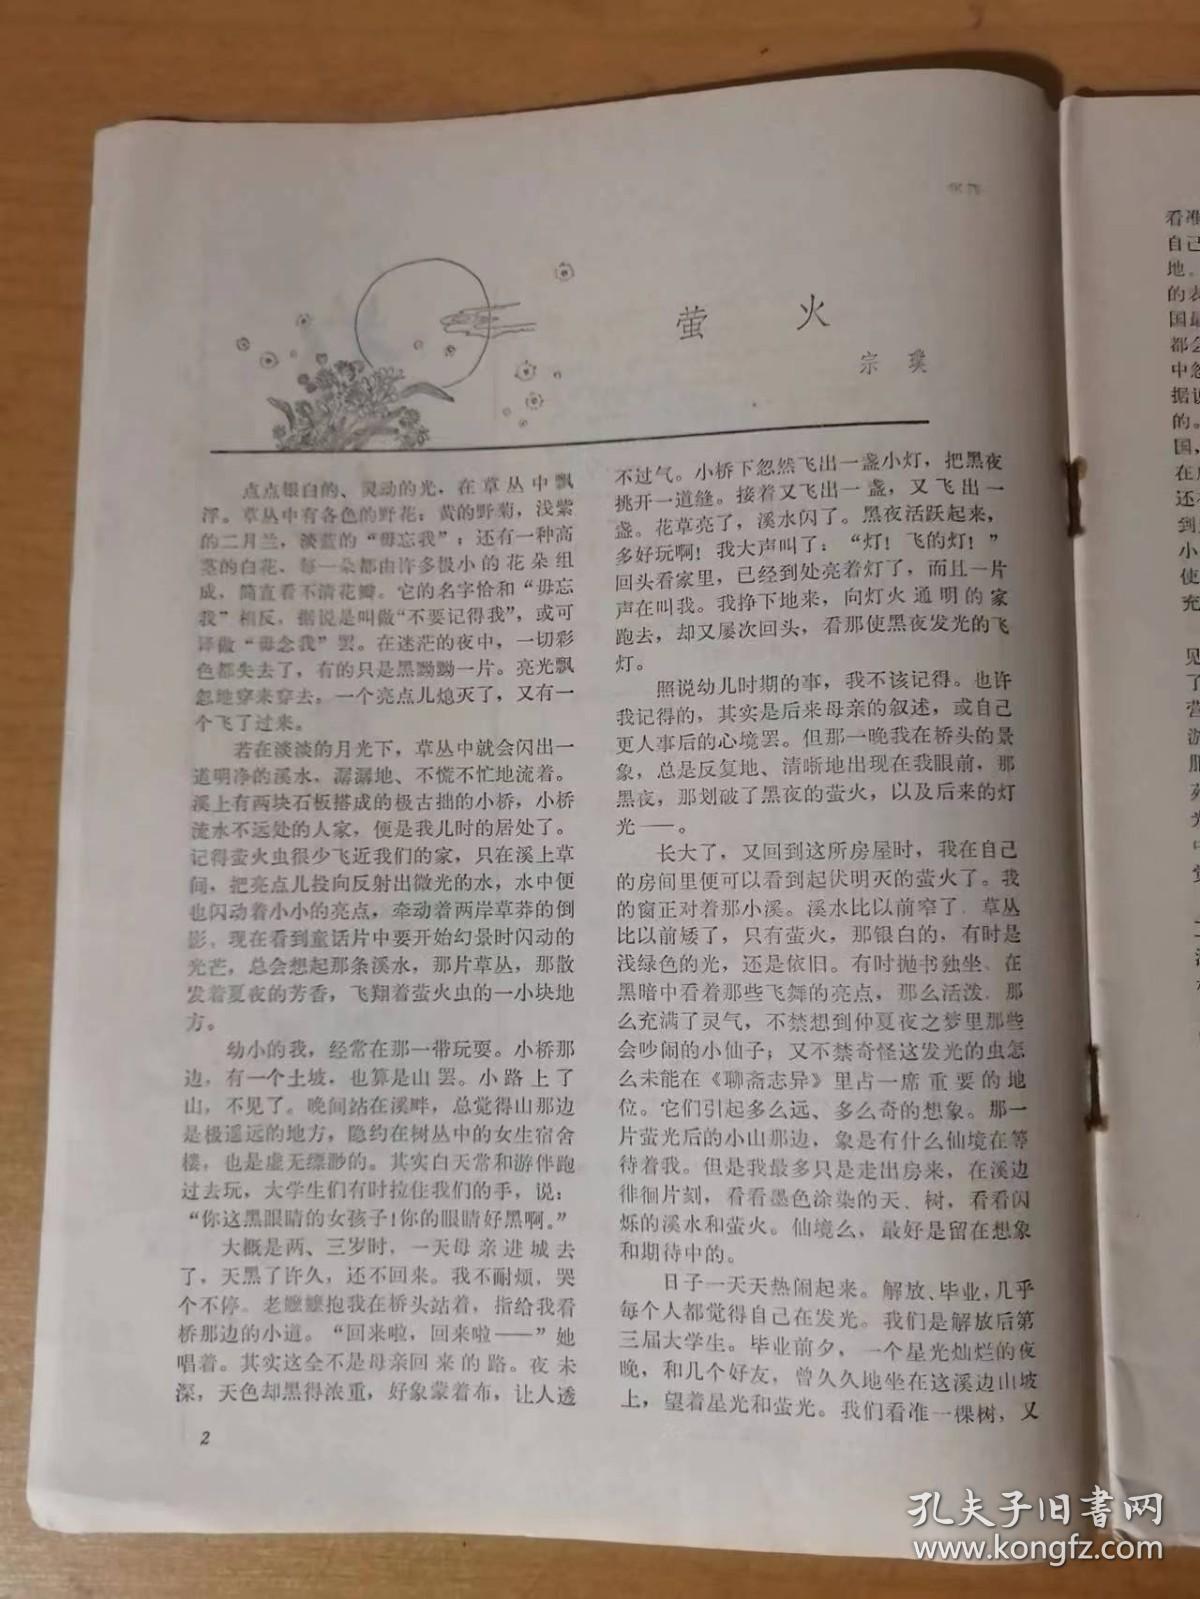 萤火
宗璞
点点银白的、灵动的光，在草丛中飘
浮。草丛中有各色的野花：黄的野菊，浅紫
的二月兰，淡蓝的“毋忘我”；还有一种高
茎的白花，每一朵都由许多极小的花朵组
成，简直看不清花瓣。它的名字恰和“毋忘
我”相反，据说是叫做“不要记得我”，或可
译做“毋念我”罢。在迷茫的夜中，一切彩
色都失去了，有的只是黑黝黝一片。亮光飘
忽地穿来穿去，一个亮点儿熄灭了，又有一
个飞了过来。
若在淡淡的月光下，草丛中就会闪出一
道明净的溪水，潺潺地、不慌不忙地流着。
溪上有两块石板搭成的极古拙的小桥，小桥
流水不远处的人家，便是我儿时的居处了。
记得萤火虫很少飞近我们的家，只在溪上草
间，把亮点儿投向反射出微光的水，水中便
也闪动着小小的亮点，牵动着两岸草莽的倒
影。现在看到童话片中要开始幻景时闪动的
光芒，总会想起那条溪水，那片草丛，那散
发着夏夜的芳香，飞翔着萤火虫的一小块地
方。
幼小的我，经常在那一带玩耍。小桥那
边，有一个土坡，也算是山罢。小路上了
山，不见了。晚间站在溪畔，总觉得山那边
是极遥远的地方，隐约在树丛中的女生宿舍
楼，也是虚无缥渺的。其实白天常和游伴跑
过去玩，大学生们有时拉住我们的手，说：
“你这黑眼睛的女孩子！你的眼睛好黑啊。”
大概是两、三岁时，一天母亲进城去
了，天黑了许久，还不回来。我不耐烦，哭
个不停。老嬷嬷抱我在桥头站着，指给我看
桥那边的小道。“回来啦，回来啦——”她
唱着。其实这全不是母亲回来的路。夜未
深，天色却黑得浓重，好象蒙着布，让人透
不过气。小桥下忽然飞出一盏小灯，把黑夜
挑开一道缝。接着又飞出一盏，又飞出一
盏。花草亮了，溪水闪了。黑夜活跃起来，
多好玩啊！我大声叫了：“灯！飞的灯！”
回头看家里，已经到处亮着灯了，而且一片
声在叫我。我挣下地来，向灯火通明的家
跑去，却又屡次回头，看那使黑夜发光的飞
灯。
照说幼儿时期的事，我不该记得。也许
我记得的，其实是后来母亲的叙述，或自己
更人事后的心境罢。但那一晚我在桥头的景
象，总是反复地、清晰地出现在我眼前，那
黑夜，那划破了黑夜的萤火，以及后来的灯
光——。
长大了，又回到这所房屋时，我在自己
的房间里便可以看到起伏明灭的萤火了。我
的窗正对着那小溪。溪水比以前窄了，草丛
比以前矮了，只有萤火，那银白的，有时是
浅绿色的光，还是依旧。有时抛书独坐，在
黑暗中看着那些飞舞的亮点，那么活泼，那
么充满了灵气，不禁想到仲夏夜之梦里那些
会吵闹的小仙子；又不禁奇怪这发光的虫怎
么未能在《聊斋志异》里占一席重要的地
位。它们引起多么远、多么奇的想象。那一
片萤光后的小山那边，象是有什么仙境在等
待着我。但是我最多只是走出房来，在溪边
徘徊片刻，看看墨色涂染的天、树，看看闪
烁的溪水和萤火。仙境么，最好是留在想象
和期待中的。
日子一天天热闹起来。解放、毕业，几乎
每个人都觉得自己在发光。我们是解放后第
三届大学生。毕业前夕，一个星光灿烂的夜
晚，和几个好友，曾久久地坐在这溪边山坡
上，望着星光和萤光。我们看准一棵树，又
2
看准
自己
地。
的表
国最
都会
中忽
据说
的。
国，
在
还
到
小
使
充
见
了
营
游
服
苑
孔夫子旧书网
www.kongfz.com